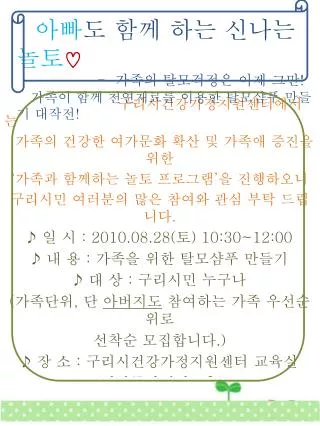 아빠도 함께 하는 신나는
놀토♡
- 가족의 탈모걱정은 이제 그만!
가족이 함께 천연재료를 이용한 탈모샴푸 만들
기 대작전!
구리시건강가정지원센터에서
는
가족의 건강한 여가문화 확산 및 가족애 증진을
위한
'가족과 함께하는 놀토 프로그램'을 진행하오니
구리시민 여러분의 많은 참여와 관심 부탁 드립
니다.
♪ 일 시 : 2010.08.28(토) 10:30~12:00
♪ 내 용 : 가족을 위한 탈모샴푸 만들기
♪ 대 상 : 구리시민 누구나
(가족단위, 단 아버지도 참여하는 가족 우선순
위로
선착순 모집합니다.)
♪ 장 소 : 구리시건강가정지원센터 교육실